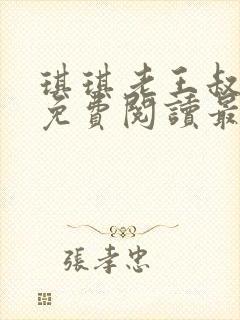 琪琪老王叔
免費閱讀最
張孝忠